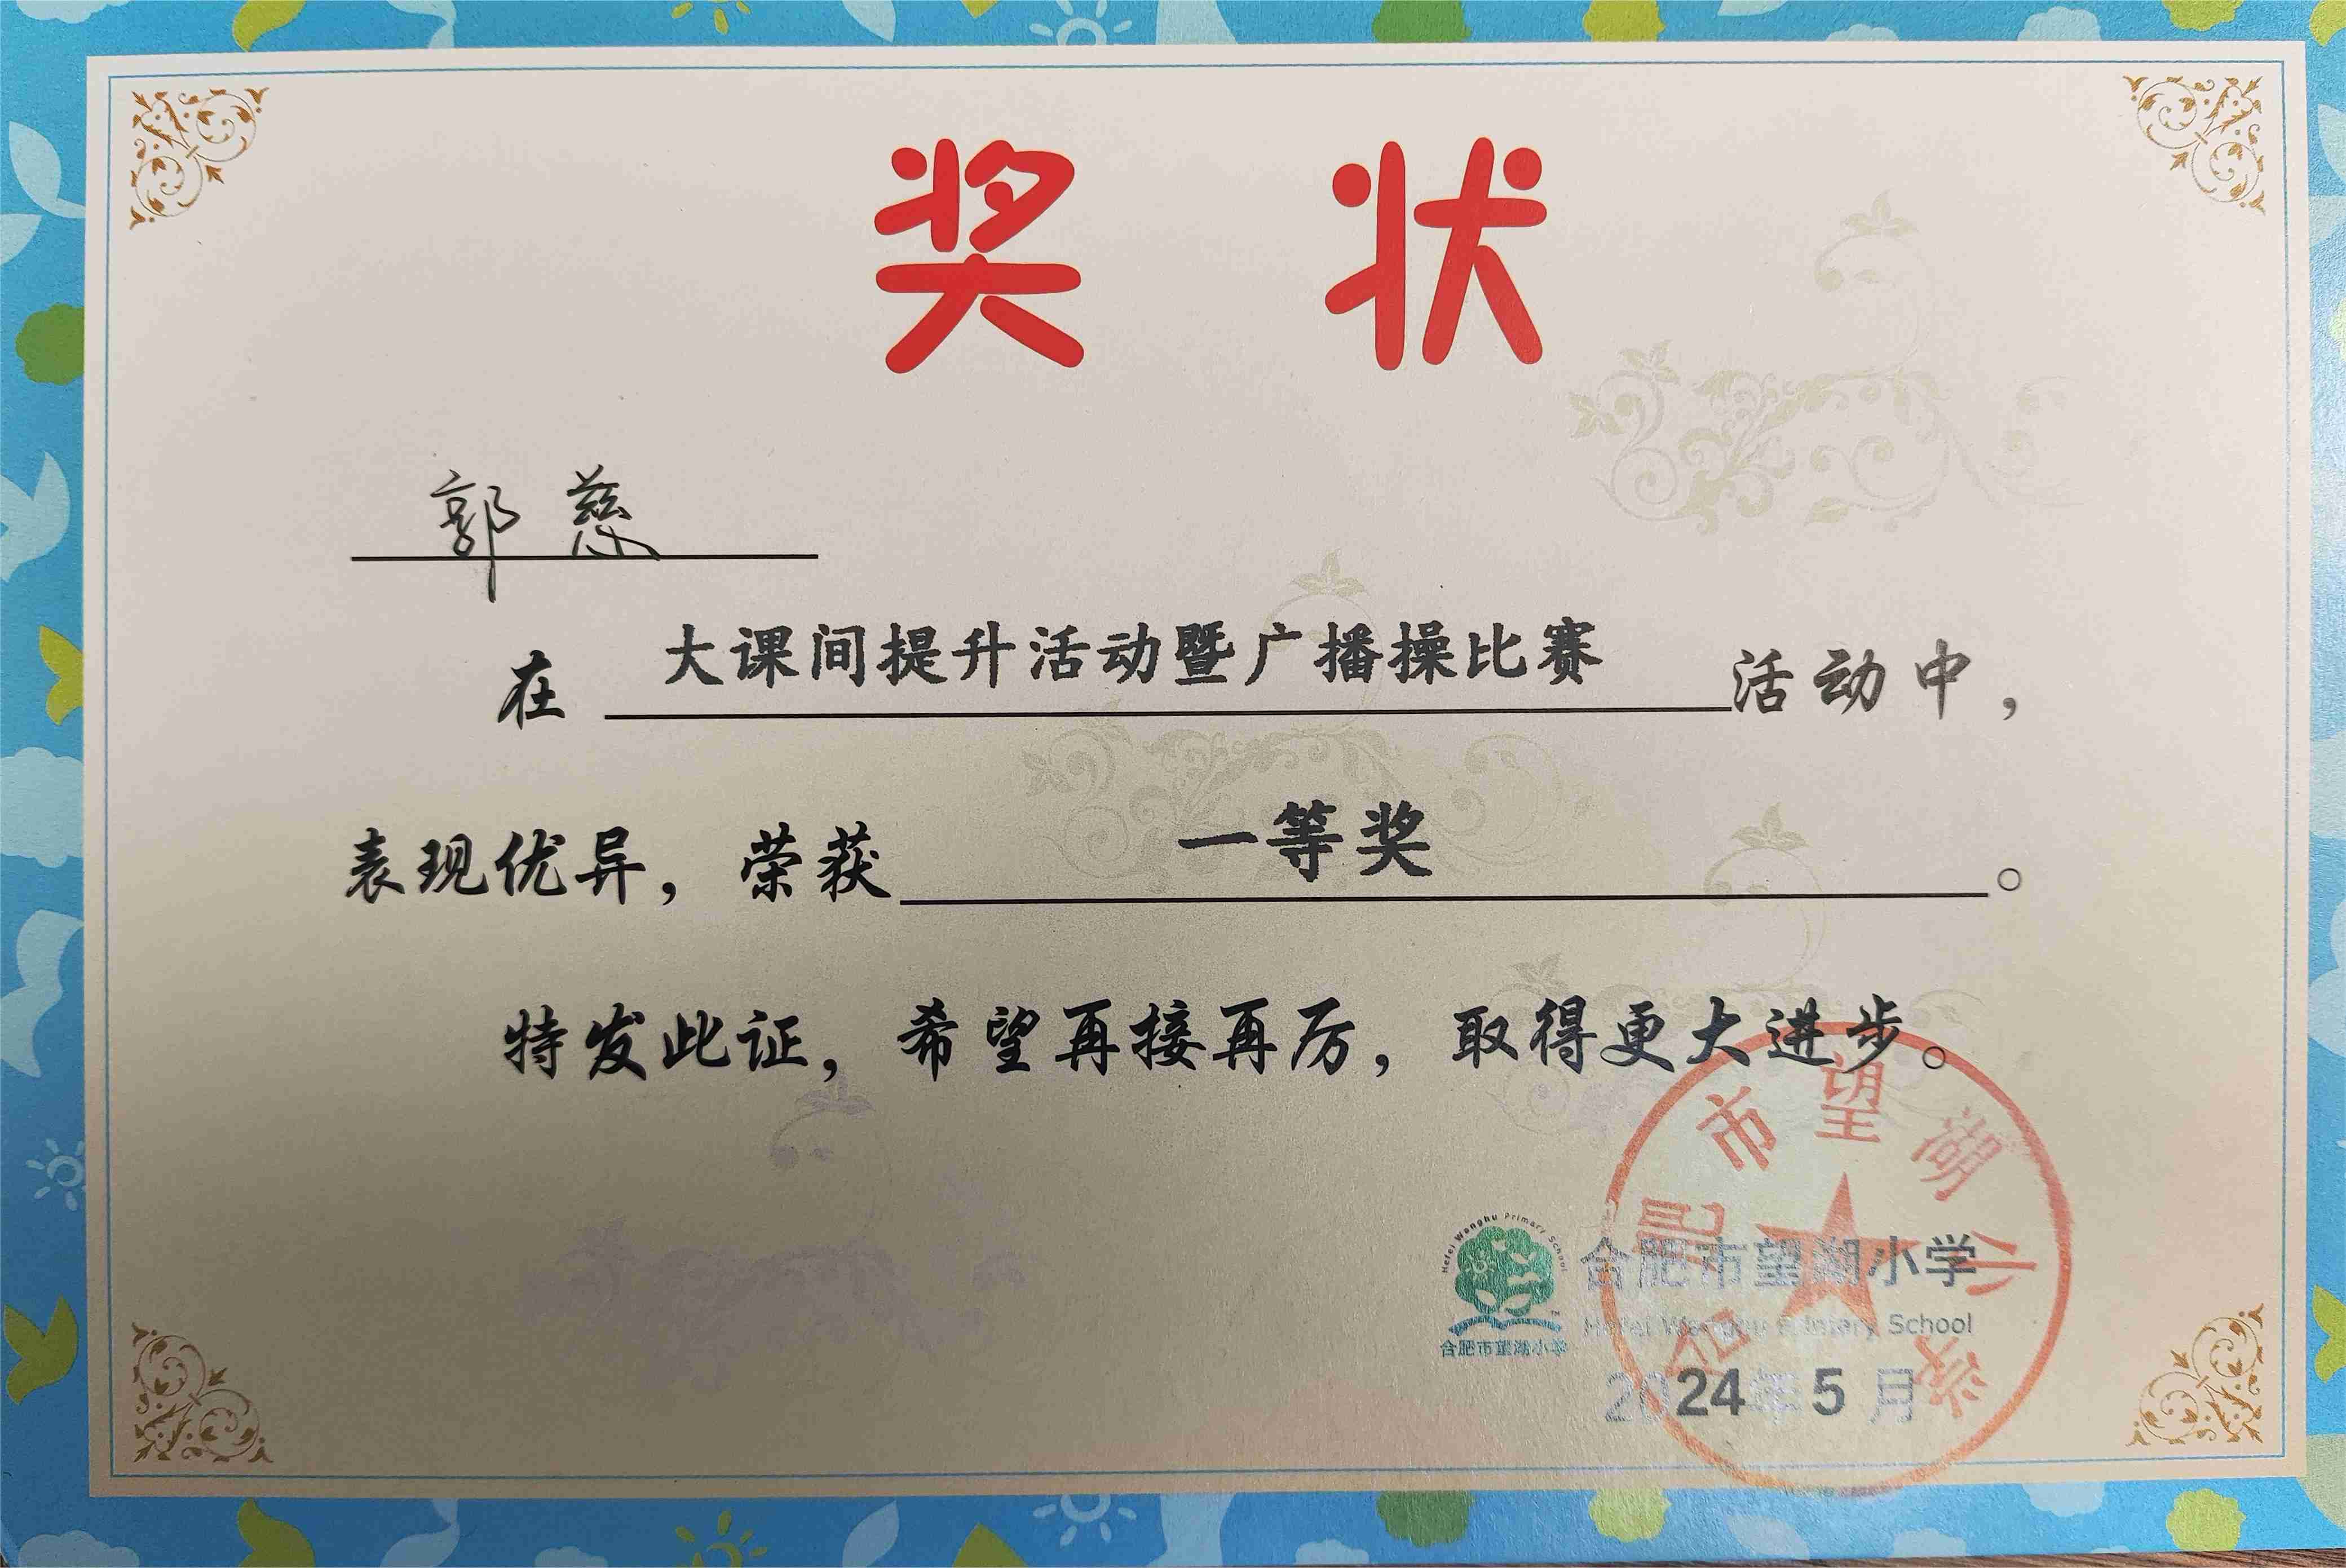 奖 状
郭慈
在 大课间提升活动暨广播操比赛 活动中，
表现优异，荣获 一等奖 。
特发此证，希望再接再厉，取得更大进步。
Hefei Wanghu Primary School
合肥市望湖小学
合肥市望湖小学
Hefei Wanghu Primary School
2024年5月
合肥市望湖小学